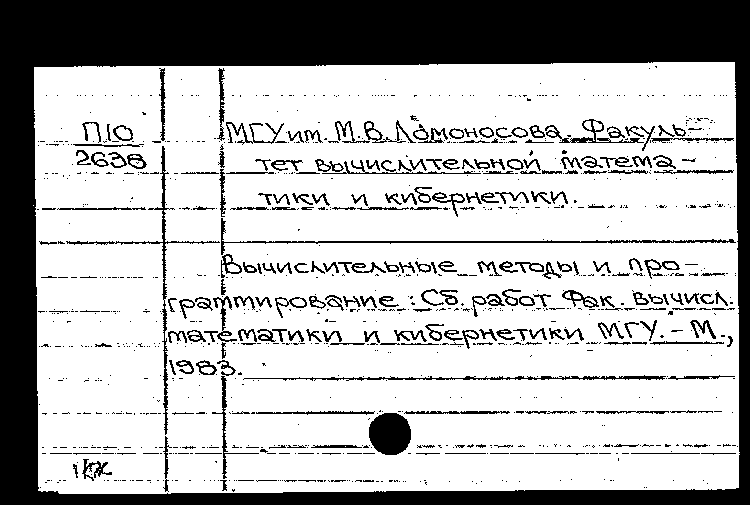 П10
2638
МГУ им. М.В. Ломоносова. Факуль-
тет вычислительной матема-
тики и кибернетики.
Вычислительные методы и про-
граммирование : Сб. работ Фак. вычисл.
математики и кибернетики МГУ. - М.,
1983.